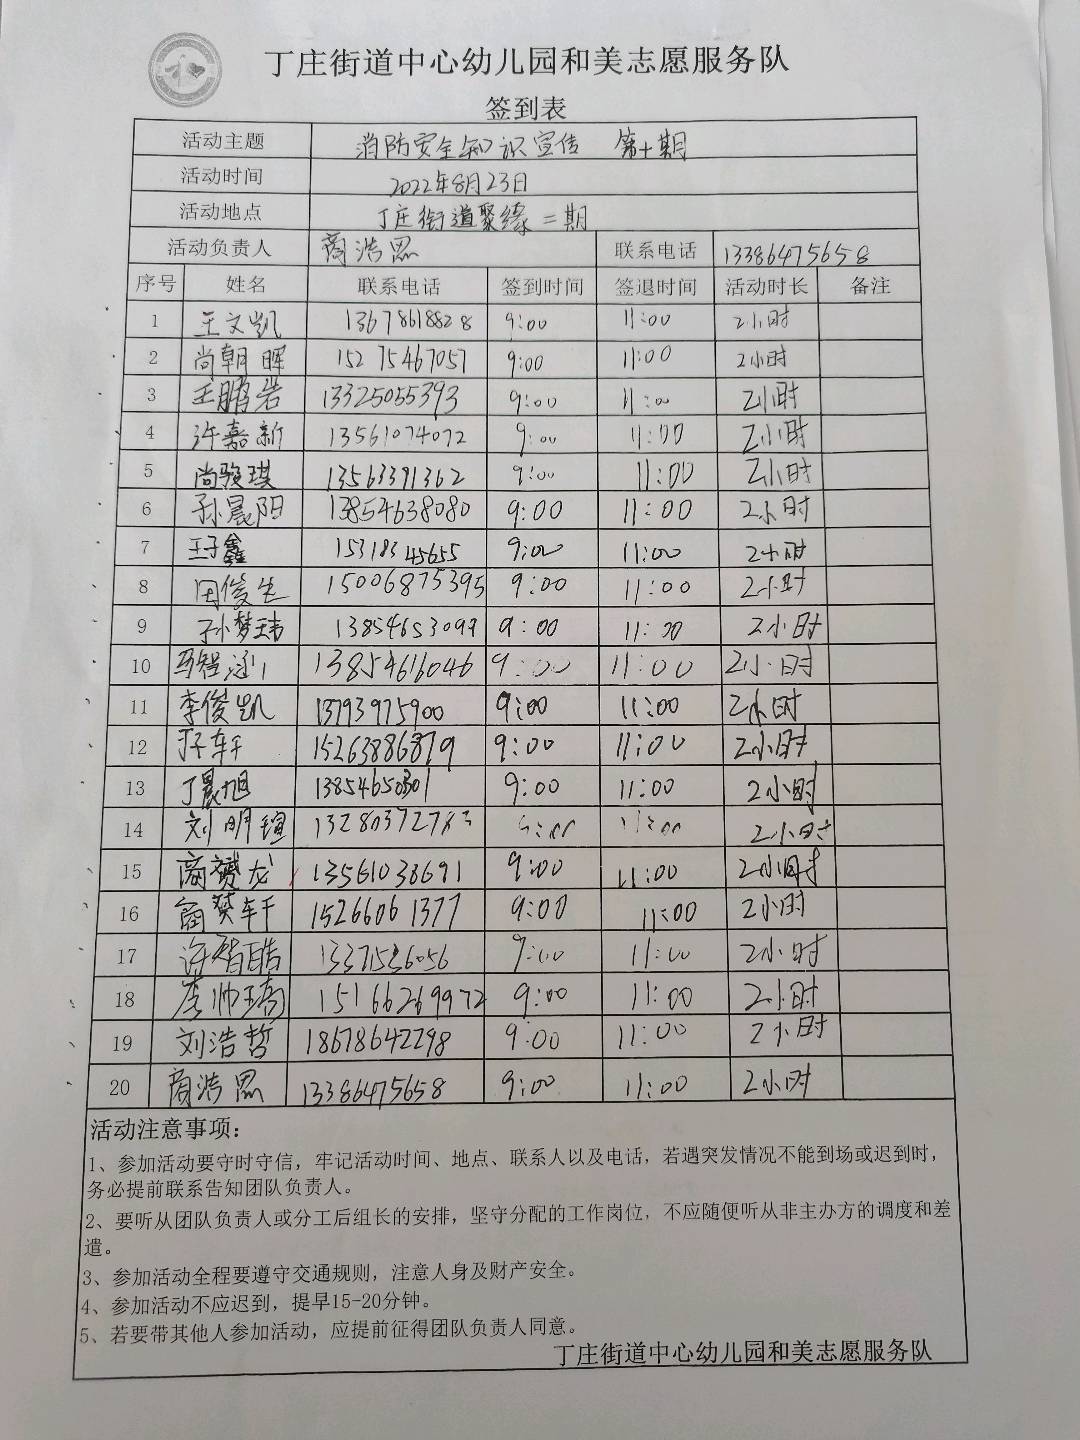 丁庄街道中心幼儿园和美志愿服务队
签到表
活动主题 消防安全知识宣传 第十期
活动时间 2022年8月23日
活动地点 丁庄街道聚缘二期
活动负责人 商浩恩 联系电话 13386475658
序号 姓名 联系电话 签到时间 签退时间 活动时长 备注
1 王文凯 13678618828 9:00 11:00 2小时
2 尚朝晖 15275467057 9:00 11:00 2小时
3 王鹏岩 13325055393 9:00 11:00 2小时
4 许嘉新 13561074072 9:00 11:00 2小时
5 尚骏琪 13563391362 9:00 11:00 2小时
6 孙晨阳 13854638080 9:00 11:00 2小时
7 王子鑫 15318345655 9:00 11:00 2小时
8 田俊生 15006875395 9:00 11:00 2小时
9 孙梦玮 13854653099 9:00 11:00 2小时
10 马程涵 13854616046 9:00 11:00 2小时
11 李俊凯 13793975900 9:00 11:00 2小时
12 15263886879 9:00 11:00 2小时
13 丁晨旭 13854650301 9:00 11:00 2小时
14 刘明瑄 13280372783 9:00 11:00 2小时
15 商赟龙 13561038691 9:00 11:00 2小时
16 商樊轩 15266061377 9:00 11:00 2小时
17 许智皓 13371536056 9:00 11:00 2小时
18 李帅 15166269972 9:00 11:00 2小时
19 刘浩哲 18678642298 9:00 11:00 2小时
20 商浩恩 13386475658 9:00 11:00 2小时
活动注意事项：
1、参加活动要守时守信，牢记活动时间、地点、联系人以及电话，若遇突发情况不能到场或迟到时，
务必提前联系告知团队负责人。
2、要听从团队负责人或分工后组长的安排，坚守分配的工作岗位，不应随便听从非主办方的调度和差
遣。
3、参加活动全程要遵守交通规则，注意人身及财产安全。
4、参加活动不应迟到，提早15-20分钟。
5、若要带其他人参加活动，应提前征得团队负责人同意。
丁庄街道中心幼儿园和美志愿服务队